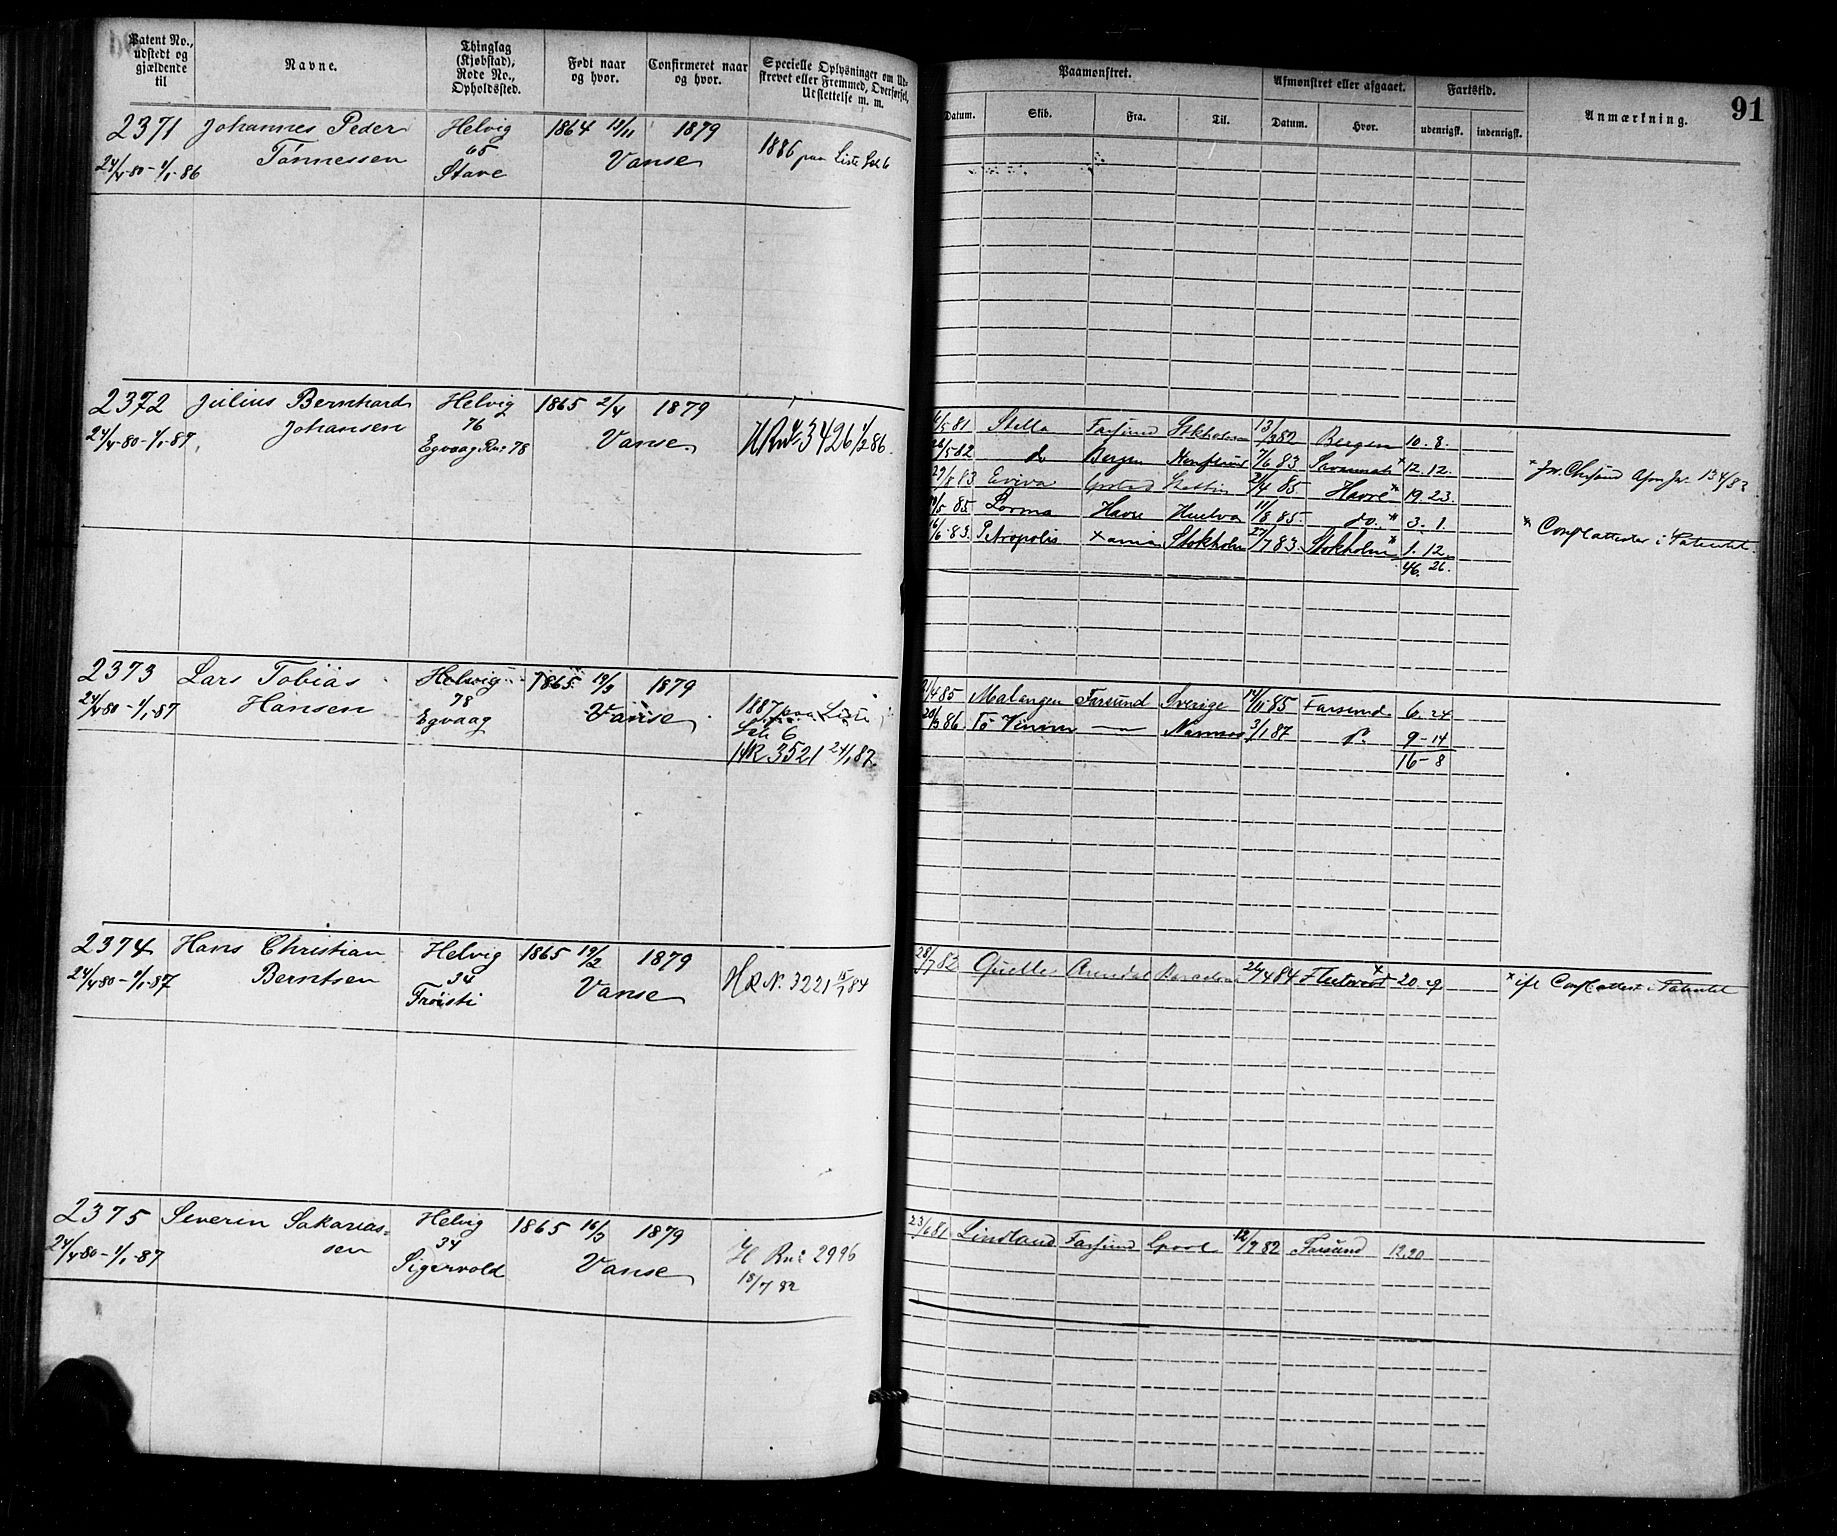 Patent No., udstedt og gjældende til
Navne.
Thinglag (Kjøbstad), Rode No., Opholdssted.
Født naar og hvor.
Confirmeret naar og hvor.
Specielle Oplysninger om Ud-
skrevet eller Fremmed, Overførsel,
Udslettelse m. m.
2371 Johannes Peder Helvig 1864 13/11 1879
24/4-80-1/1-86 Tønnessen 65 Stave Vanse 1886 paa Liste
2372 Julius Bernhard Helvig 1865 2/4 1879
24/4-80-1/1-87 Johansen 76 Egvaag Vanse 3426 1/2 86.
2373 Lars Tobias Helvig 1865 19/3 1879
24/4-80-1/1-87 Hansen 78 Egvaag Vanse 1887 paa Liste
6
HR 3521 24/1 87
2374 Hans Christian Helvig 1865 19/2 1879
24/4-80-1/1-87 Berntsen 34 Trøisti Vanse N. 3221 15/7 84
2375 Severin Sakarias- Helvig 1865 16/3 1879
24/4-80-1/1-87 sen 34 Sigersvold Vanse 2996
18/7 82
91
Paamønstret. Afmønstret eller afgaaet. Fartstid.
Datum. Skib. Fra. Til. Datum. Hvor. udenrigsk. indenrigsk. Anmærkning.
81 Stella Farsund 13/3 82 Bergen 10. 8.
26/5 82 do Bergen 7/6 83 Savannah* 12. 12.
83 Eviva Stettin 85 Havre* 19. 23.
85 Lorma Havre Huelva 11/8 85 do.* 3. 1.
16/6 83. Petropolis Xania Stokholm 27/7 83. Stokholm* 1. 12
46. 26.
134/83
* i Patentet.
4 85 Malangen Farsund Sverige 14/11 85 Farsund 6. 24
86 — 3/1 87 9-14
16-8
28/7 82 Quelle Arendal 26/4 84 Fleetwood* 20. 9
* i Patentet
23/6 81 Lindland Farsund 12/7 82 Farsund 12. 20